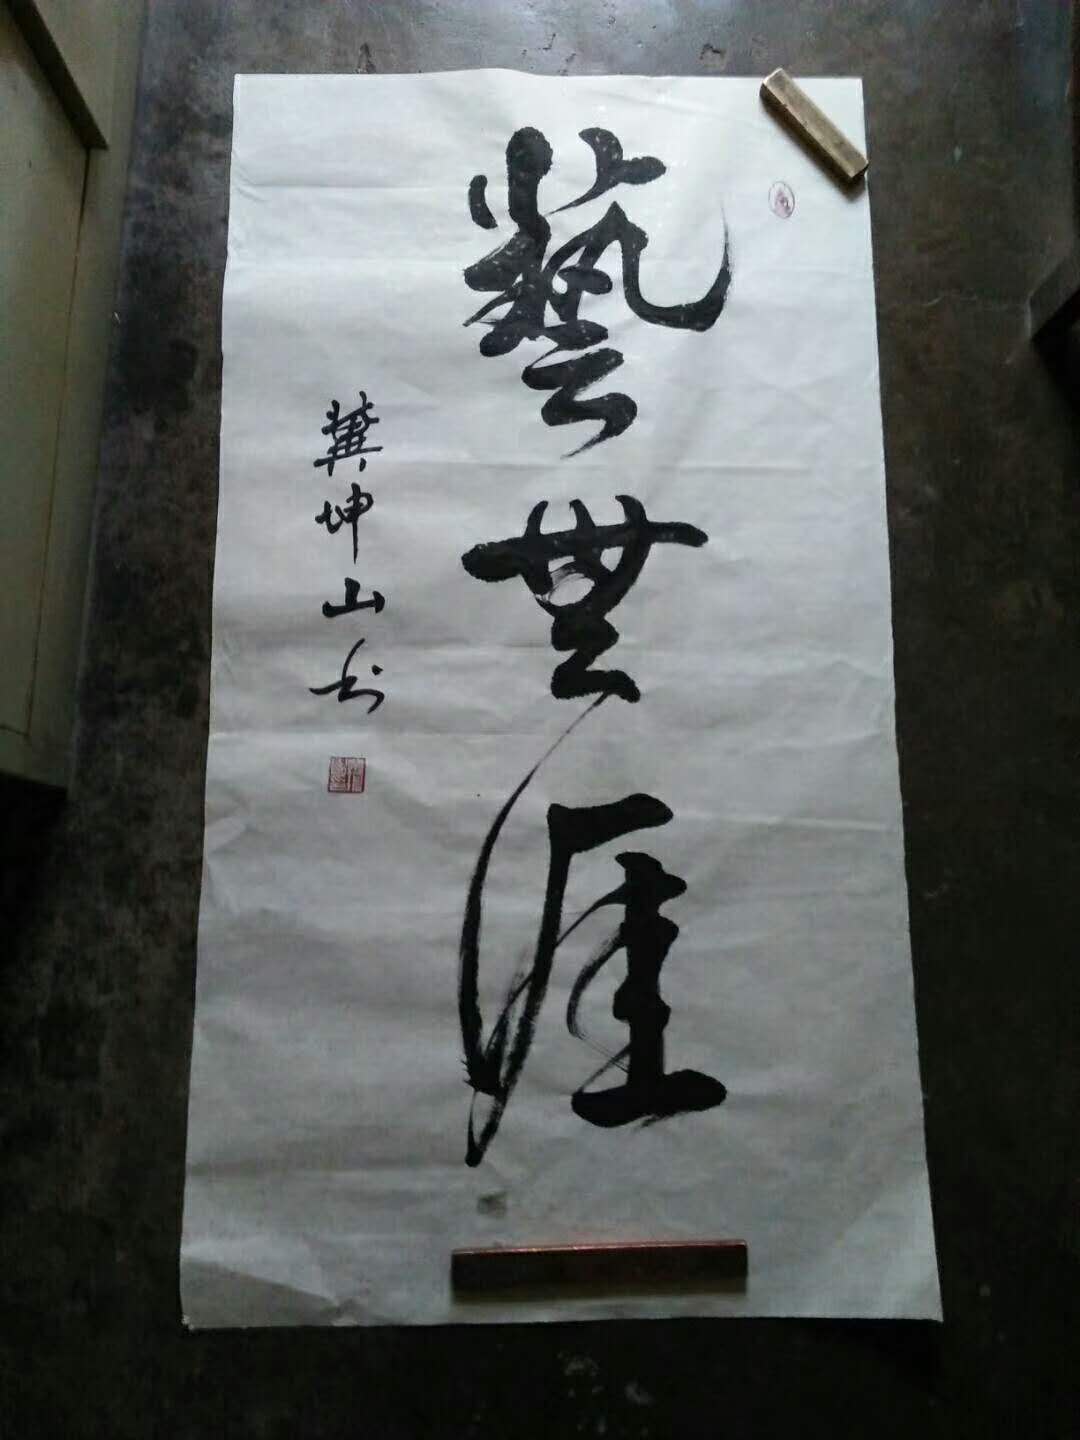 藝無涯
龔坤山书